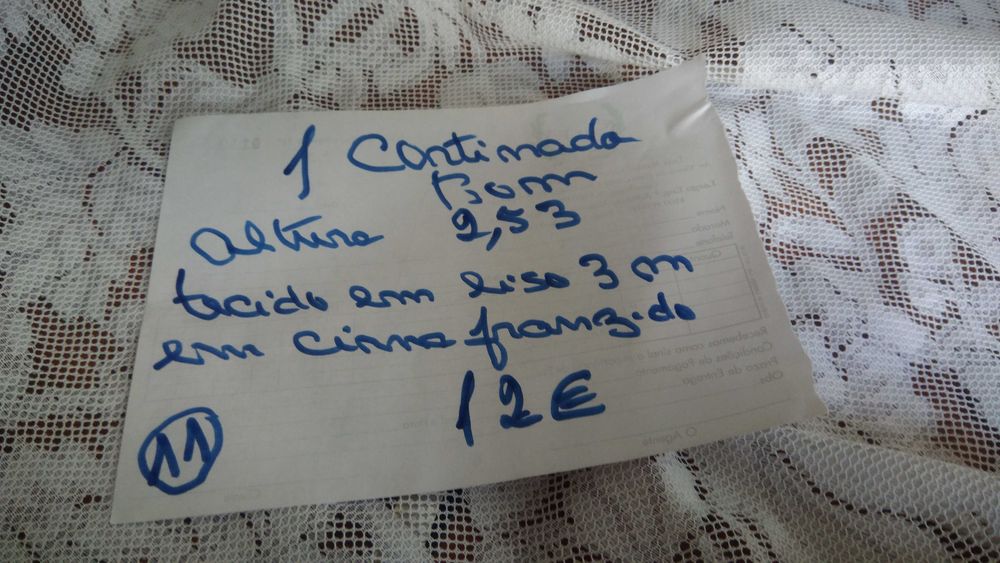 1 Cortinado
bom
altura 2,53
tecido em liso 3 m
em cima franzido
12€
11
Recebemos como sinal
Condições de Pagamento
Prazo de Entrega
Obs.
O Agente